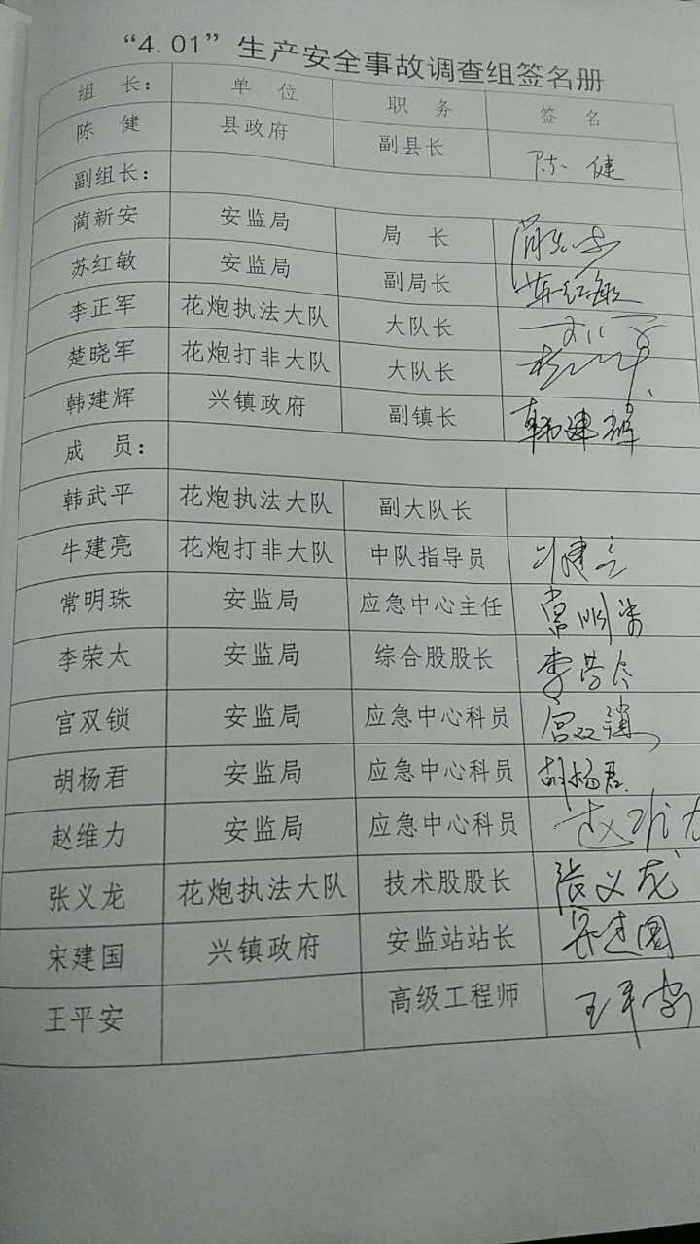 “4.01”生产安全事故调查组签名册
组 长： 单 位 职 务 签 名
陈 健 县政府 副县长 陈健
副组长：
蔺新安 安监局 局 长 蔺新安
苏红敏 安监局 副局长 苏红敏
李正军 花炮执法大队 大队长
楚晓军 花炮打非大队 大队长
韩建辉 兴镇政府 副镇长 韩建辉
成 员：
韩武平 花炮执法大队 副大队长
牛建亮 花炮打非大队 中队指导员 牛建亮
常明珠 安监局 应急中心主任 常明珠
李荣太 安监局 综合股股长 李荣太
宫双锁 安监局 应急中心科员 宫双锁
胡杨君 安监局 应急中心科员 胡杨君
赵维力 安监局 应急中心科员 赵维力
张义龙 花炮执法大队 技术股股长 张义龙
宋建国 兴镇政府 安监站站长 宋建国
王平安 高级工程师 王平安